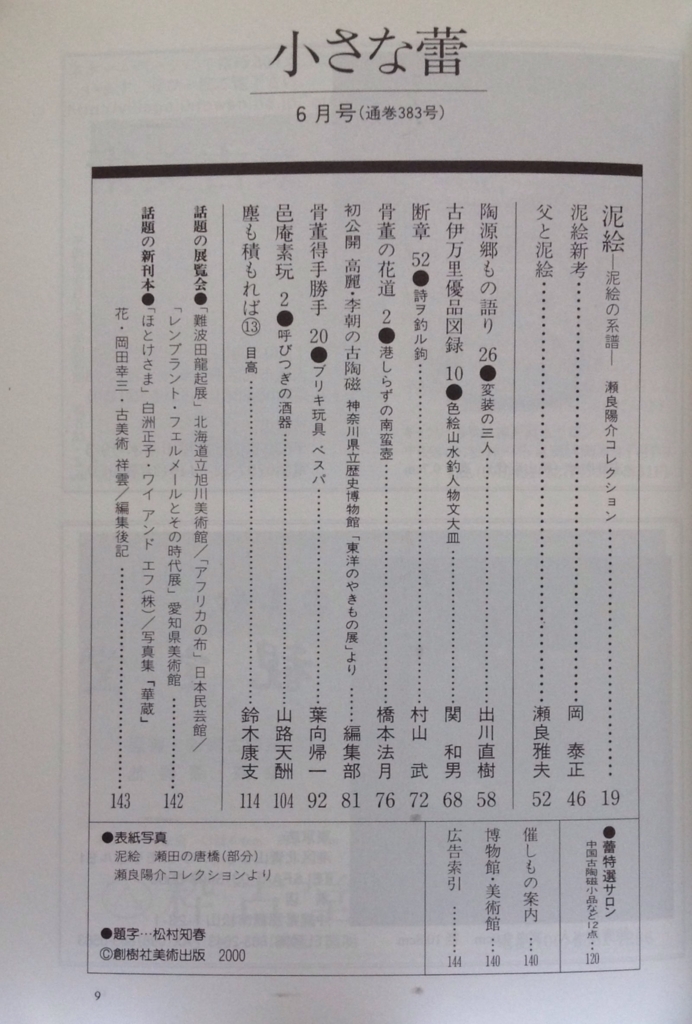 小さな蕾
6月号(通巻383号)
泥絵―泥絵の系譜― 瀬良陽介コレクション…………19
泥絵新考…………岡 泰正 46
父と泥絵…………瀬良雅夫 52
陶源郷もの語り 26●変装の三人…………出川直樹 58
古伊万里優品図録 10●色絵山水釣人物文大皿…………関 和男 68
断章 52●詩ヲ釣ル鉤…………村山 武 72
骨董の花道 2●港しらずの南蛮壺…………橋本法月 76
初公開 高麗・李朝の古陶磁 神奈川県立歴史博物館「東洋のやきもの展」より……編集部 81
骨董得手勝手 20●ブリキ玩具 ベスパ…………葉向帰一 92
邑庵素玩 2●呼びつぎの酒器…………山路天酬 104
塵も積もれば⑬ 目高…………鈴木康支 114
話題の展覧会●「難波田龍起展」北海道立旭川美術館/「アフリカの布」日本民芸館/
「レンブラント・フェルメールとその時代展」愛知県美術館…………142
話題の新刊本●「ほとけさま」白洲正子・ワイ アンド エフ(株)/写真集「華蔵」
花・岡田幸三・古美術 祥雲/編集後記…………143
●蕾特選サロン
中国古陶磁小品など12点…120
催しもの案内……140
博物館・美術館……140
広告索引………144
●表紙写真
泥絵 瀬田の唐橋(部分)
瀬良陽介コレクションより
●題字…松村知春
©創樹社美術出版 2000
9